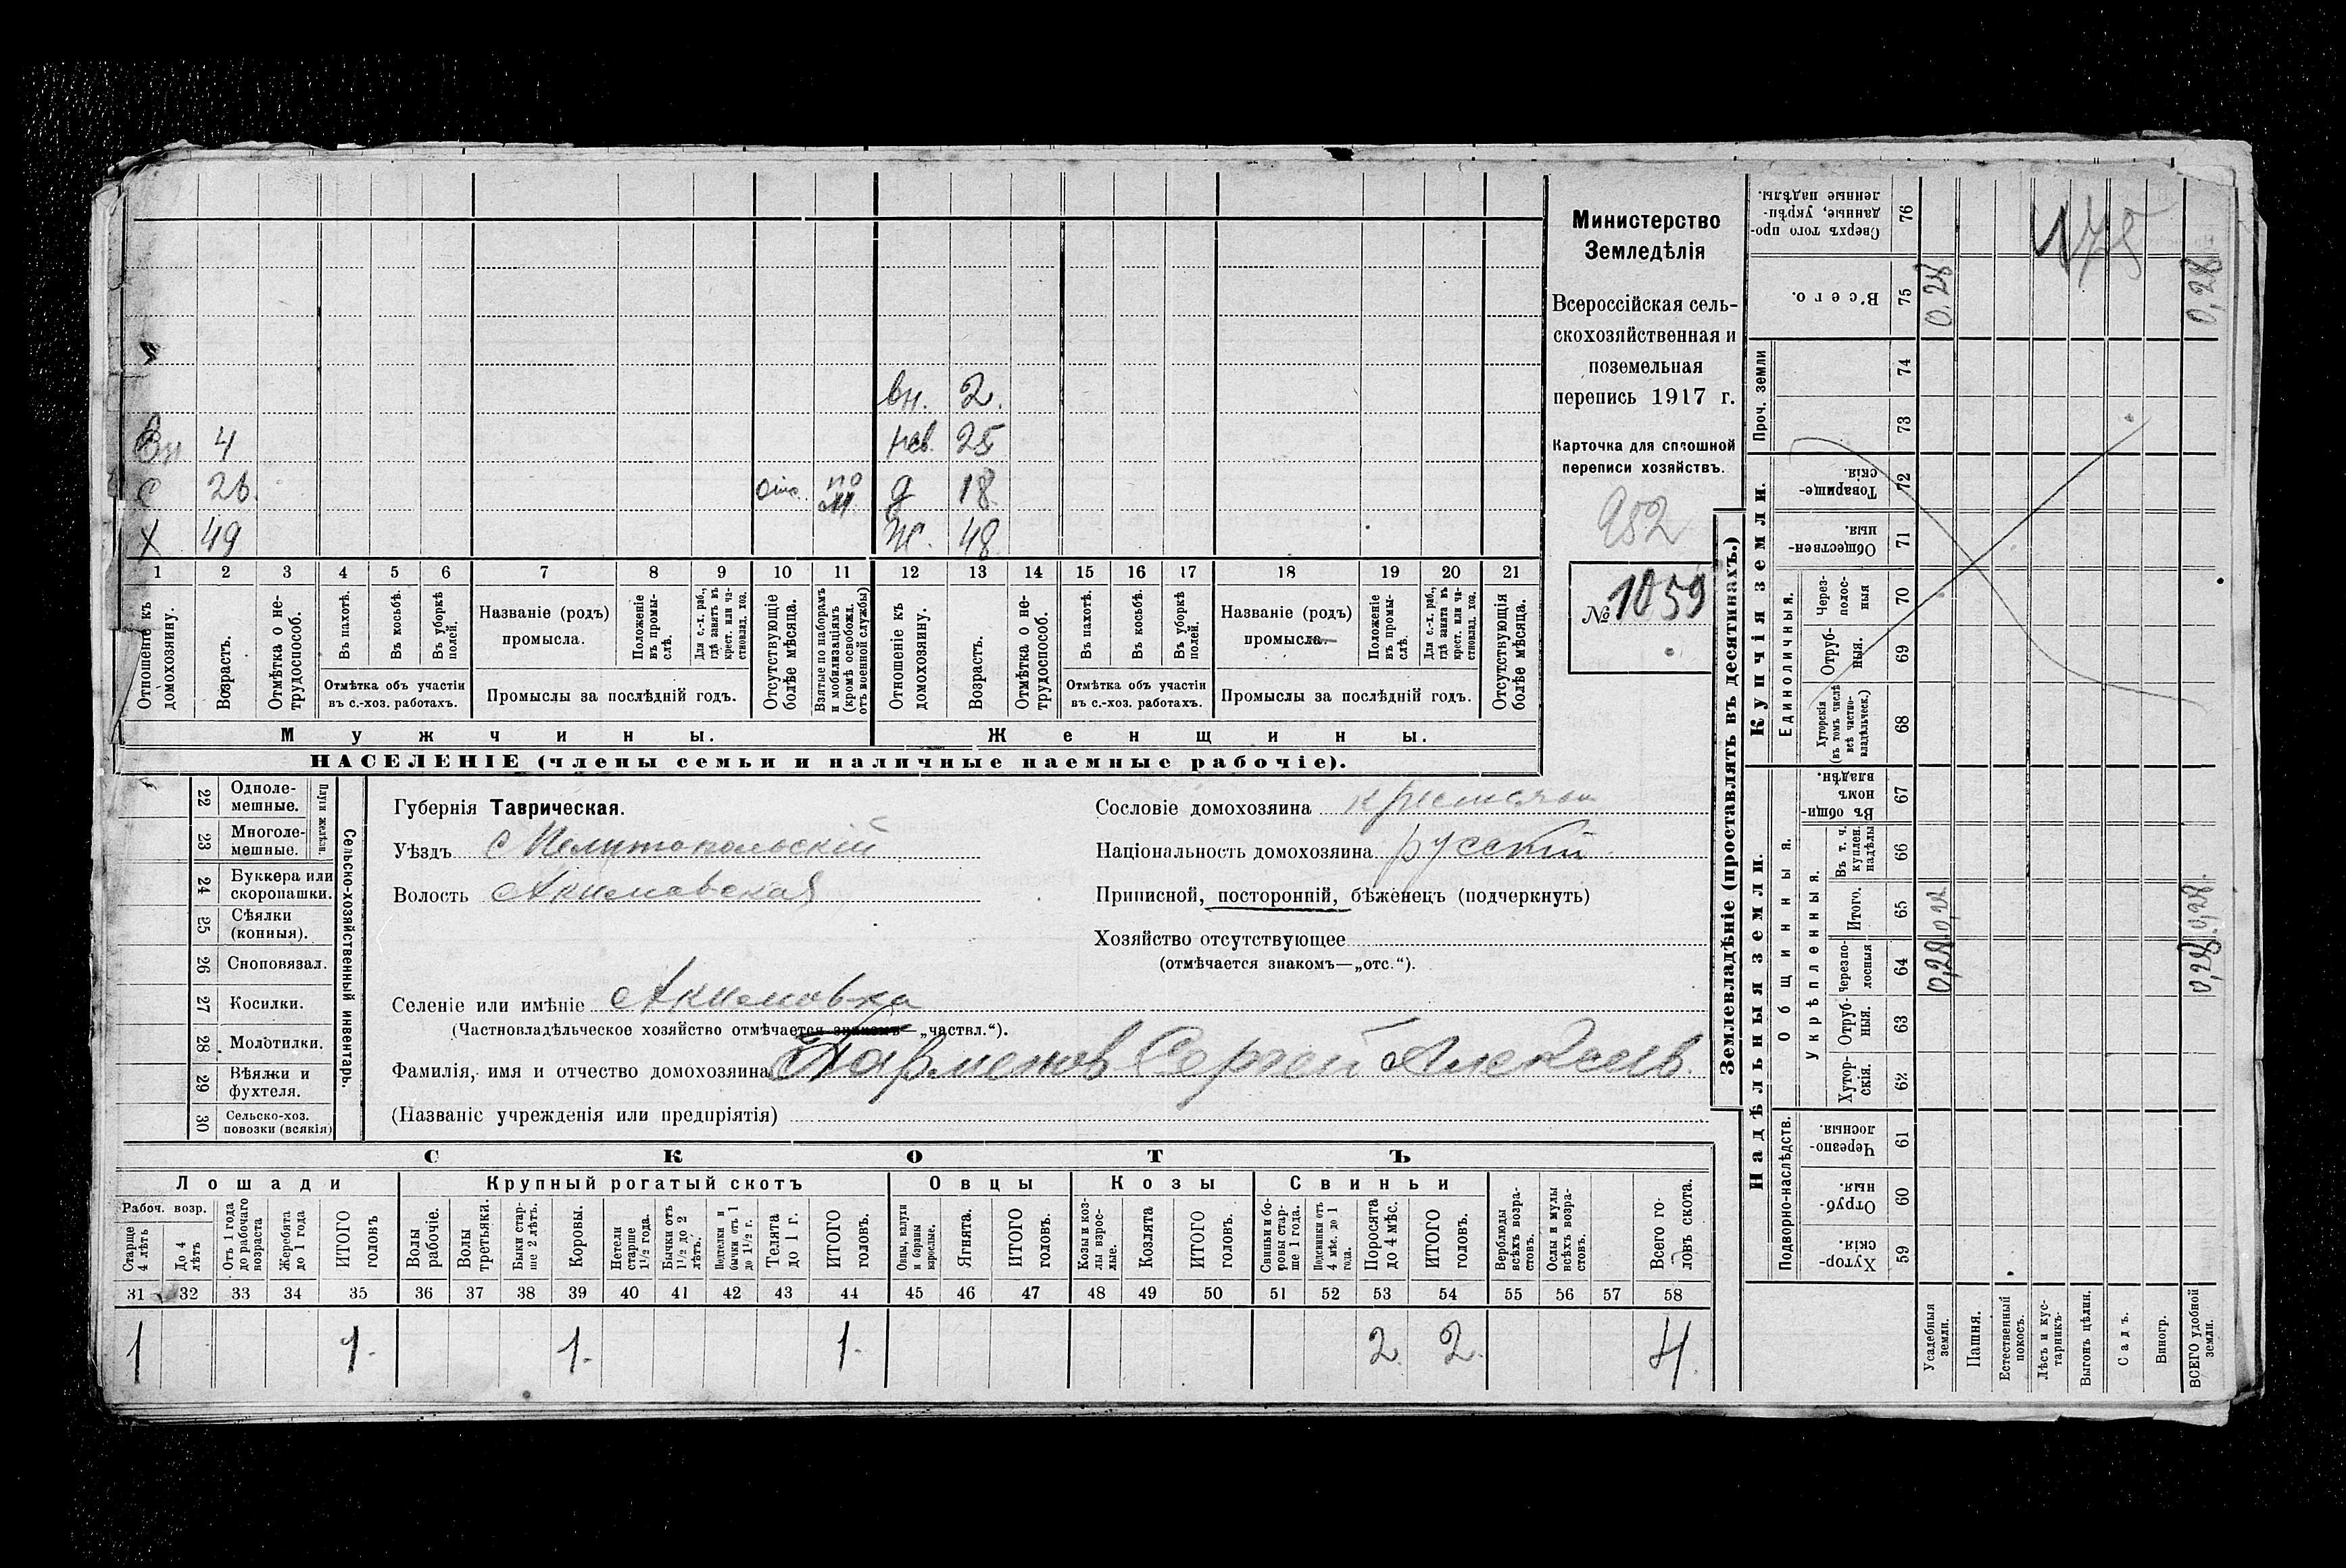 вн. 2.
Вн 4 нев. 25
С 26. отс. по М. д 18
Х 49 Ж. 48
1 2 3 4 5 6 7 8 9 10 11 12 13 14 15 16 17 18 19 20 21
Отношеніе къ домохозяину.
Возрастъ.
Отмѣтка о не-трудоспособ.
Въ пахотѣ.
Въ косьбѣ.
Въ уборкѣ полей.
Отмѣтка объ участіи
въ с.-хоз. работахъ.
Названіе (родъ)
промысла.
Положеніе въ промы-слѣ.
Для с.-х. раб., гдѣ занятъ въ крест. или ча-стновлад. хоз.
Промыслы за послѣдній годъ.
Отсутствующіе болѣе мѣсяца.
Взятые по наборамъ и мобилизаціямъ (кромѣ освобожд. отъ военной службы)
Отношеніе къ домохозяину.
Возрастъ.
Отмѣтка о не-трудоспособ.
Въ пахотѣ.
Въ косьбѣ.
Въ уборкѣ полей.
Отмѣтка объ участіи
въ с.-хоз. работахъ.
Названіе (родъ)
промысла.
Положеніе въ промы-слѣ.
Для с.-х. раб., гдѣ занята въ крест. или ча-стновлад. хоз.
Промыслы за послѣдній годъ.
Отсутствующія болѣе мѣсяца.
Мужчины. Женщины.
НАСЕЛЕНІЕ (члены семьи и наличные наемные рабочіе).
Министерство
Земледѣлія
Всероссійская сель-
скохозяйственная и
поземельная
перепись 1917 г.
Карточка для сплошной
переписи хозяйствъ.
952
№ 1059
22 Одноле-мешные.
23 Многоле-мешные.
Плуги желѣзн.
24 Буккера или скоропашки.
25 Сѣялки (конныя).
26 Сноповязал.
27 Косилки.
28 Молотилки.
29 Вѣялки и фухтеля.
30 Сельско-хоз. повозки (всякія)
Сельско-хозяйственный инвентарь.
Губернія Таврическая.
Уѣздъ Мелитопольскій
Волость Акимовская
Селеніе или имѣніе Акимовка
(Частновладѣльческое хозяйство отмѣчается знакомъ—„частвл.“).
Фамилія, имя и отчество домохозяина Парменов Сергей Алексеев
(Названіе учрежденія или предпріятія)
Сословіе домохозяина крестьян
Національность домохозяина русскій
Приписной, посторонній, бѣженецъ (подчеркнуть)
Хозяйство отсутствующее
(отмѣчается знакомъ—„отс.“).
СКОТЪ
Лошади Крупный рогатый скотъ Овцы Козы Свиньи
Рабоч. возр.
Старше 4 лѣтъ
До 4 лѣтъ
Отъ 1 года до рабочаго возраста
Жеребята до 1 года
ИТОГО головъ
Волы рабочіе.
Волы третьяки.
Быки стар-ше 2 лѣтъ.
Коровы.
Нетели старше 1½ года.
Бычки отъ 1½ до 2 лѣтъ.
Подтелки и бычки отъ 1 до 1½ г.
Телята до 1 г.
ИТОГО головъ.
Овцы, валухи и бараны взрослые.
Ягнята.
ИТОГО головъ.
Козы и коз-лы взрос-лые.
Козлята
ИТОГО головъ.
Свиньи и бо-ровы стар-ше 1 года.
Подсвинки отъ 4 мѣс. до 1 года.
Поросята до 4 мѣс.
ИТОГО головъ.
Верблюды всѣхъ возра-стовъ.
Ослы и мулы всѣхъ возра-стовъ.
Всего го-ловъ скота.
31 32 33 34 35 36 37 38 39 40 41 42 43 44 45 46 47 48 49 50 51 52 53 54 55 56 57 58
1 1. 1. 1. 2. 2. 4.
Землевладѣніе (проставлять въ десятинахъ.)
Надѣльныя земли. Купчія земли.
Проч. земли
Общинныя. Единоличныя.
Подворно-наслѣдств. Укрѣпленныя.
Хутор-скія. 59
Отруб-ныя. 60
Черезпо-лосныя. 61
Хутор-скія. 62
Отруб-ныя. 63
Черезпо-лосныя 64
Итого. 65
Въ т. ч. куплен. надѣлы 66
Въ общи-номъ владѣн. 67
Хуторскія (въ томъ числѣ всѣ частно-владѣльческ.) 68
Отруб-ныя. 69
Через-полос-ныя 70
Обществен-ныя. 71
Товарище-скія. 72
73
74
Всего. 75
Сверхъ того про-данные, укрѣп-ленные надѣлы. 76
Усадебныя земли. 0,28 0,28 0,28
Пашня.
Естественный покосъ.
Лѣсъ и кус-тарникъ.
Выгонъ цѣлин.
Садъ.
Виногр.
ВСЕГО удобной земли. 0,28 0,28 0,28
175